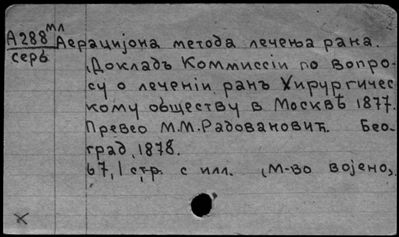 А288 мл
серь
Аерацијона метода лечења рана.
(Докладъ Коммиссіи по вопро-
су о леченіи ранъ Хирургичес-
кому обществу в Москвѣ 1877.
Превео М.М.Радовановиħ. Бео-
град, 1878.
67, 1 стр. с илл. (М-во војено).